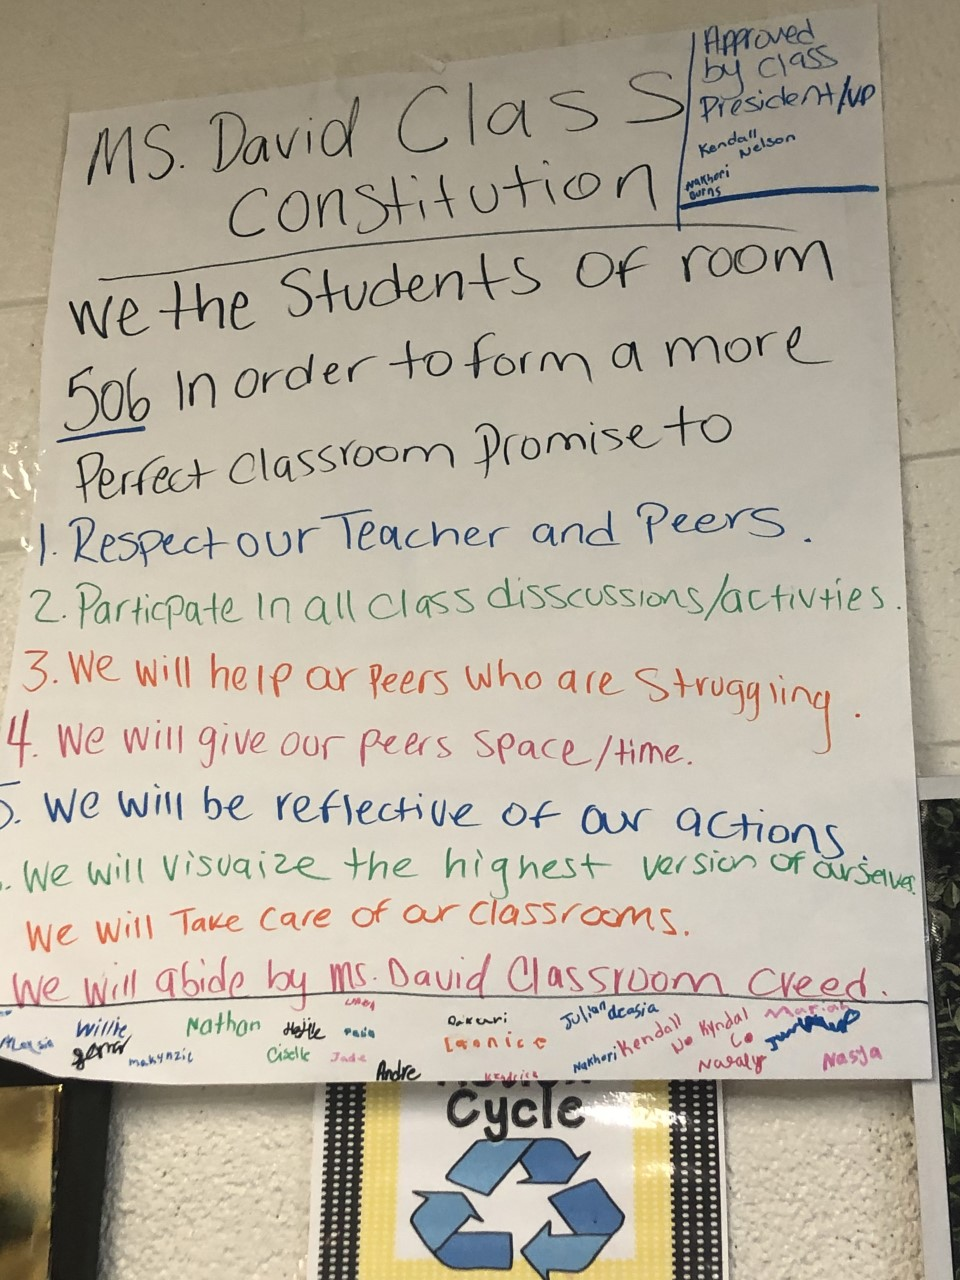 MS. David Class
Constitution
Approved
by Class
President/VP
Kendall
Nelson
Nakhori
Burns
We the Students Of room
506 In order to form a more
Perfect Classroom Promise to
1. Respect our Teacher and Peers.
2. Particpate In all class disscussions/activties.
3. We will help ar Peers who are Struggling.
4. We will give our peers space/time.
5. We will be reflective of our actions
. We will visuaize the highest version of ourselves.
We will Take care of our classrooms.
We will abide by Ms. David Classroom Creed.
Willie
Nathan
Julian
dcasia
Kendall
Kyndal
Mariah
makynzic
Ciselle
Jade
Laonice
Nakhori
Nataly
Nasya
Andre
Kendrick
Cycle